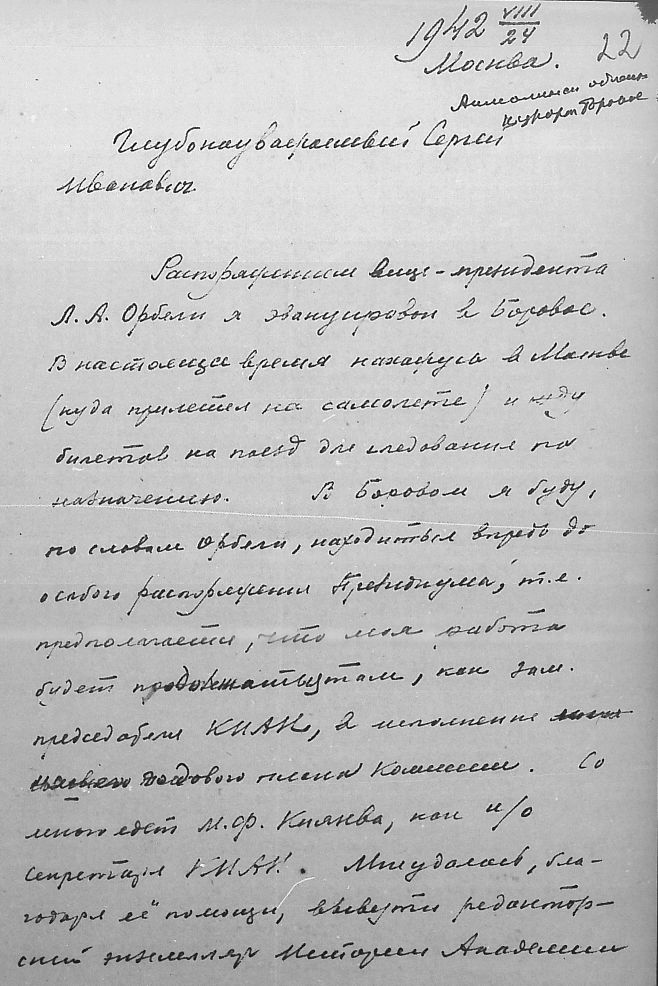 1942 VIII/24
Москва. 22
Акмолинск область
курорт Боровое
Глубокоуважаемый Сергей
Иванович.
Распоряжением вице-президента
Л. А. Орбели я эвакуирован в Боровое.
В настоящее время нахожусь в Москве
(куда прилетел на самолете) и жду
билетов на поезд для следования по
назначению. В Боровом я буду,
по словам Орбели, находиться впредь до
особого распоряжения Президиума, т.е.
предполагается, что моя работа
будет продолжаться там, как зам.
председателя КИАН, и исполнение
годового плана Комиссии. Со
мною едет М. Ф. Князева, как и/о
секретаря КИАН. Мне удалось, бла-
годаря её помощи, вывезти редактор-
ский экземпляр Истории Академии